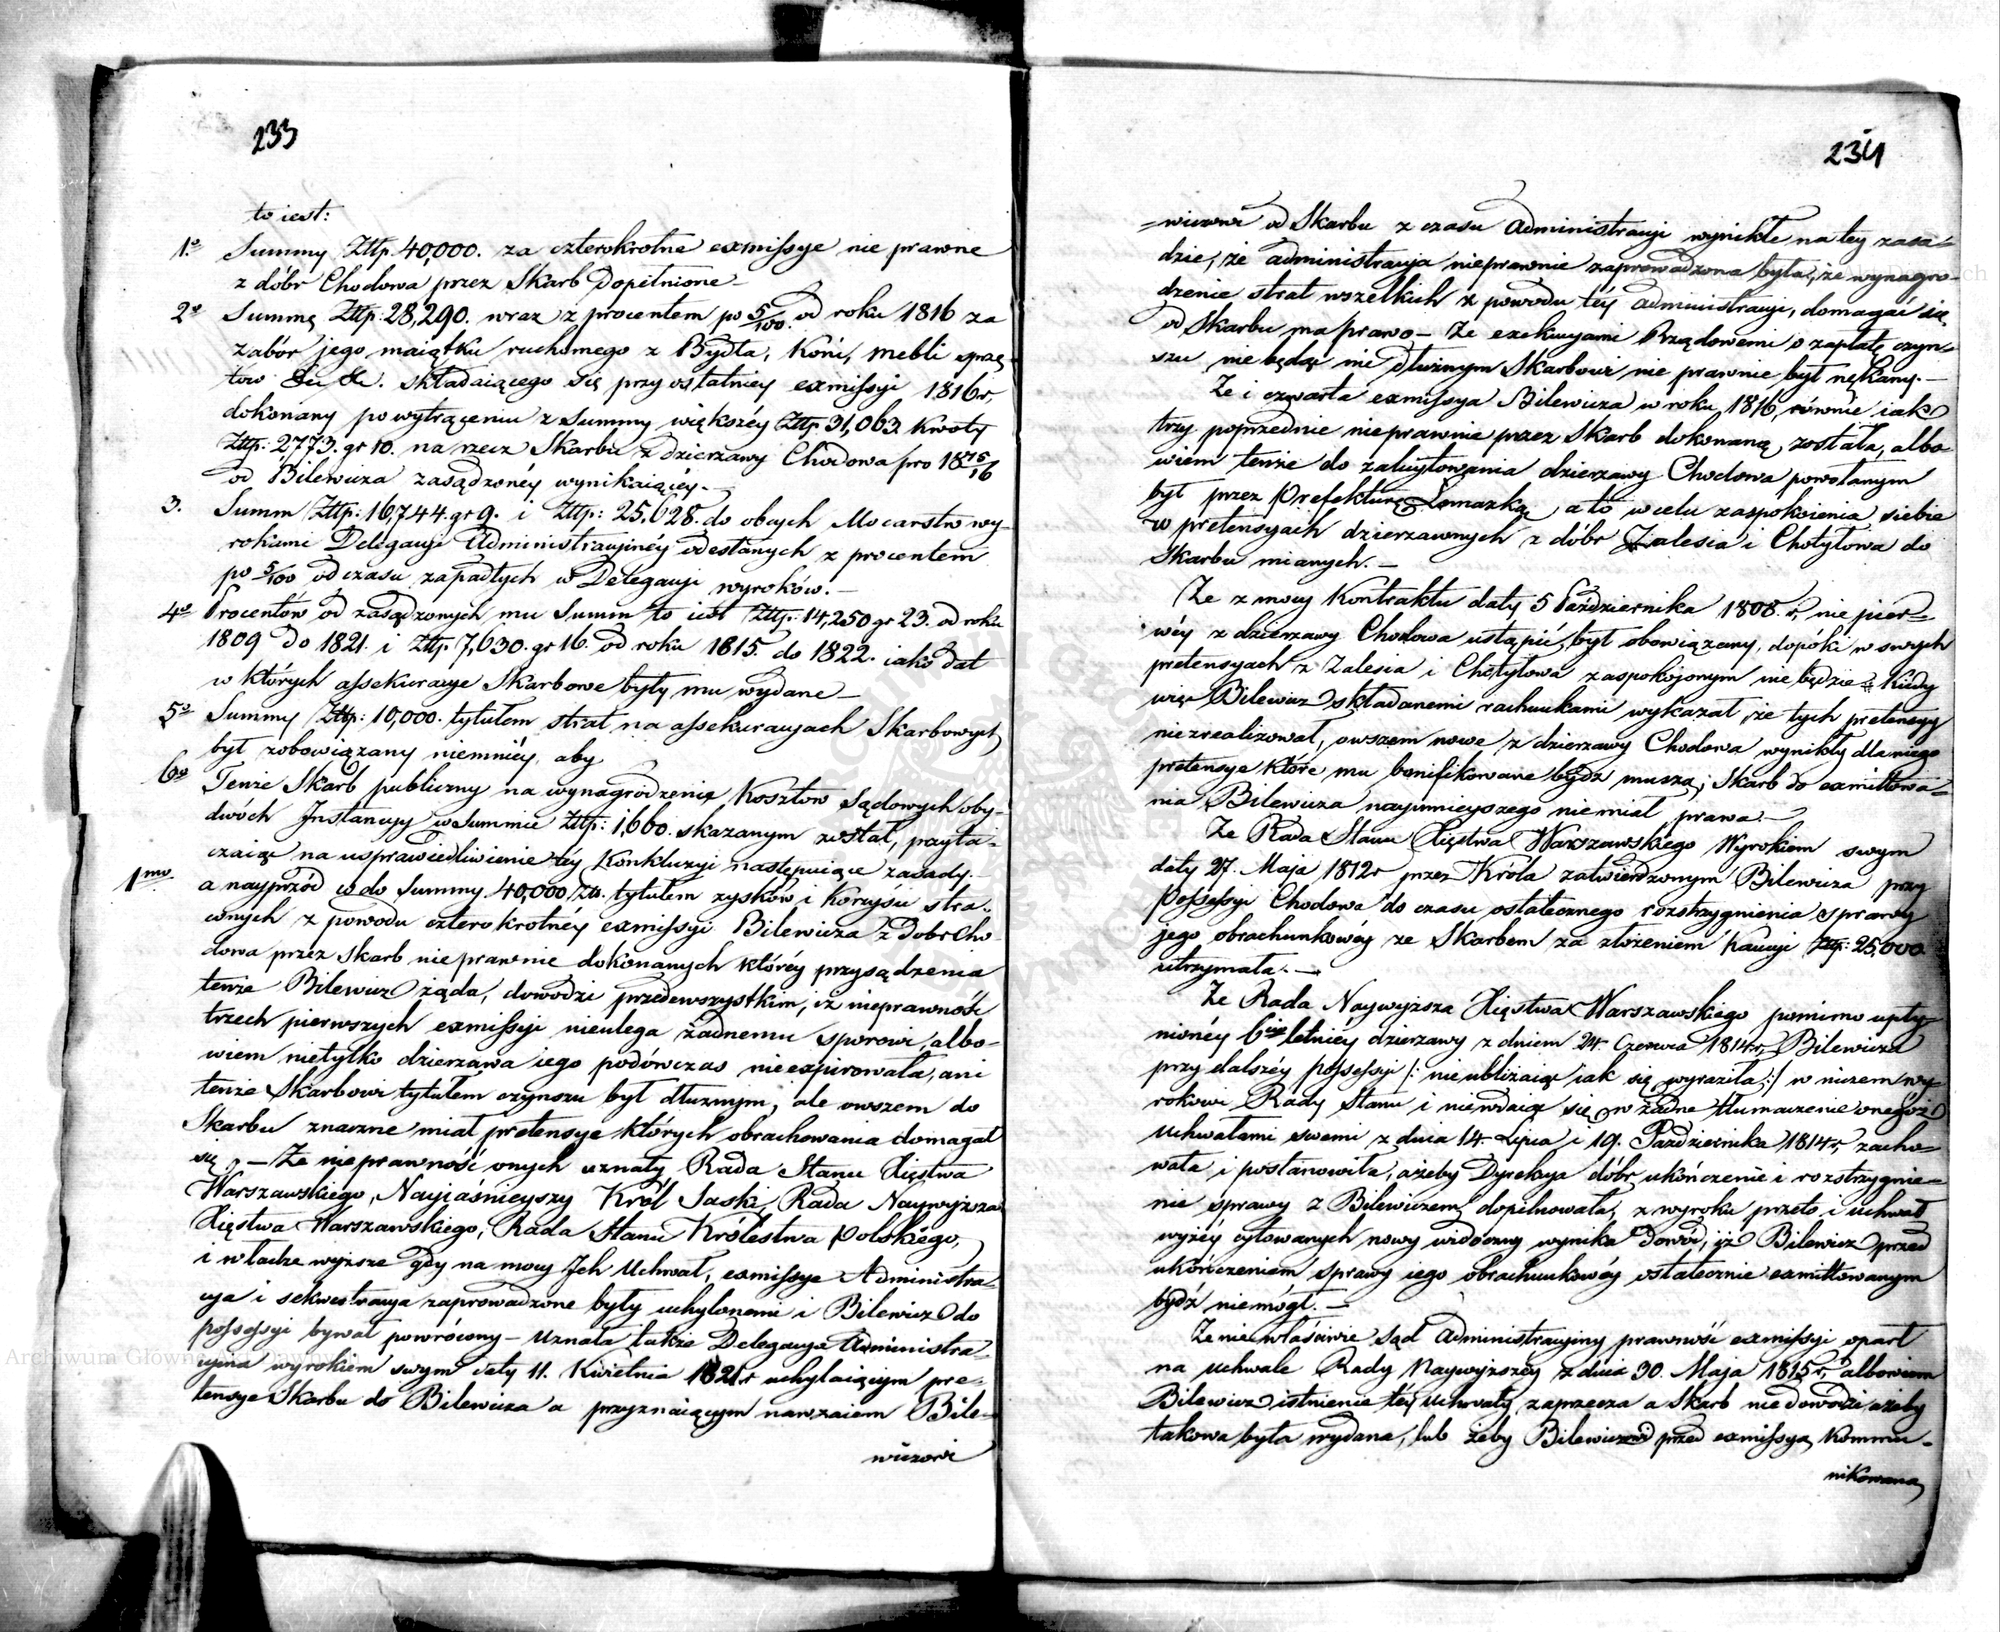 233
to iest:
1º Summy Złtp. 40,000. za czterokrotne exmissye nie prawne
z dóbr Chodowa przez Skarb dopełnione —
2º Summę Złtp: 28,290. wraz z procentem po 5/100. od roku 1816 za
zabór jego maiątku ruchomego z Bydła, Koni, mebli sprzę-
tów &c &c. składaiącego się przy ostatniey exmissyi 1816 r.
dokonany po wytrąceniu z Summy większéy Złtp 31,063. kwoty
Złtp: 2,773. gr 10. na rzecz Skarbu z dzierzawy Chodowa pro 1815/16
od Bilewicza zasądzonéy wynikaiącéy. —
3. Summ Złtp: 16,744. gr 9. i Złtp: 25,628. do obcych Mocarstw wy-
rokami Delegacyi Administracyinéy odesłanych z procentem
po 5/100 od czasu zapadłych w Delegacyi wyroków. —
4º Procentów od zasądzonych mu Summ to iest Złtp: 14,250 gr 23. od roku
1809 do 1821. i Złtp. 7,630. gr 16. od roku 1815. do 1822. iako dat
w których assekuracye Skarbowe były mu wydane —
5º Summy Złtp: 10,000. tytułem strat na assekuracyach Skarbowych
był zobowiązany niemniéy, aby
6º Tenże Skarb publiczny na wynagrodzenie Kosztów Sądowych oby-
dwóch Instancyy w Summie Złtp: 1,660. skazanym został, przyta-
czaiąc na usprawiedliwienie téy Konkluzyi następuiące zasady. —
1mo a nayprzód co do Summy 40,000 Zł. tytułem zysków i Korzyści stra-
conych z powodu czterokrotnéy exmissyi Bilewicza z Dobr Cho-
dowa przez Skarb nieprawnie dokonanych któréy przysądzenia
tenże Bilewicz żąda, dowodzi przedewszystkim, iż nieprawność
trzech pierwszych exmissyi nieulega żadnemu sporowi, albo-
wiem nietylko dzierzawa iego podówczas nieexpirowała, ani
tenże Skarbowi tytułem czynszu był dłużnym, ale owszem do
Skarbu znaczne miał pretensye których obrachowania domagał
się, — Że nieprawność onych uznały Rada Stanu Xięstwa
Warszawskiego, Nayiaśnieyszy Król Saski, Rada Naywyższa
Xięstwa Warszawskiego, Rada Stanu Królestwa Polskiégo,
i władze wyższe gdy na mocy Ich Uchwał, exmissye Administra-
cya i sekwestracya zaprowadzone były uchylonemi i Bilewicz do
possessyi bywał powrócony — Uznała także Delegacya Administra-
cyina wyrokiem swym daty 11. Kwietnia 1821 r uchylaiącym pre-
tensye Skarbu do Bilewicza a przyznaiącym nawzaiem Bile-
wiczowi
234
-wiczowi od Skarbu z czasu Administracyi wynikłe na tey zasa-
dzie, że administracya nieprawnie zaprowadzona była, że wynagro-
dzenie strat wszelkich z powodu téy administracyi, domagać się
od Skarbu ma prawo — Że exekucyami Rządowemi o zapłatę czyn-
szu nie będąc nic dłużnym Skarbowi nie prawnie był nękany. —
Że i czwarta exmissya Bilewicza w roku 1816, równie iak
trzy poprzednie nieprawnie przez Skarb dokonaną, została, albo-
wiem tenże do zalicytowania dzierzawy Chodowa powołanym
był przez Prefekturę Łomzką, a to w celu zaspokoienia siebie
w pretensyach dzierzawnych z dóbr Zalesia i Chotyłowa do
Skarbu mianych. —
Że z mocy Kontraktu daty 5 Października 1808 r, nie pier-
wéy z dzierzawy Chodowa ustąpić, był obowiązany, dopóki w swych
pretensyach z Zalesia i Chotyłowa zaspokojonym nie będzie. Kiedy
więc Bilewicz składanemi rachunkami wykazał, że tych pretensyy
niezrealizował, owszem nowe z dzierzawy Chodowa wynikły dla niego
pretensye które mu bonifikowane bydź muszą, Skarb do exmittowa-
nia Bilewicza nayimnieyszego niemiał prawa. —
Że Rada Stanu Xięstwa Warszawskiego Wyrokiem swym
daty 27. Maja 1812 r przez Króla zatwierdzonym Bilewicza przy
Possessyi Chodowa do czasu ostatecznego rozstrzygnienia sprawy
jego obrachunkowéy ze Skarbem za złożeniem Kaucyi Złtp: 25,000
utrzymała. —
Że Rada Naywyższa Xięstwa Warszawskiego pomimo upły-
nionéy 6cio letniéy dzierzawy z dniem 24. Czerwca 1814 r, Bilewicza
przy dalszéy possessyi /: nieubliżaiąc iak się wyraziła :/ w niczem wy-
rokowi Rady Stanu i niewdaiąc się w żadne tłumaczenie onegóż
Uchwałami swemi z dnia 14. Lipca i 19. Października 1814 r, zacho-
wała i postanowiła, ażeby Dyrekcya dóbr ukończenie i rozstrzygnie-
nie sprawy z Bilewiczem dopilnowała, z wyroku przeto i uchwał
wyżéy cytowanych nowy widoczny wynika dowód, iż Bilewicz przed
ukończeniem sprawy iego obrachunkowéy ostatecznie exmittowanym
bydź niemógł. —
Że niewłaściwie Sąd Administracyiny prawność exmissyi oparł
na uchwale Rady Naywyższéy z dnia 30. Maja 1815 r, albowiem
Bilewicz istnienie téy Uchwały zaprzecza a Skarb nie dowodzi ażeby
takowa była wydana, lub żeby Bilewiczowi przed exmissyą kommu-
nikowana